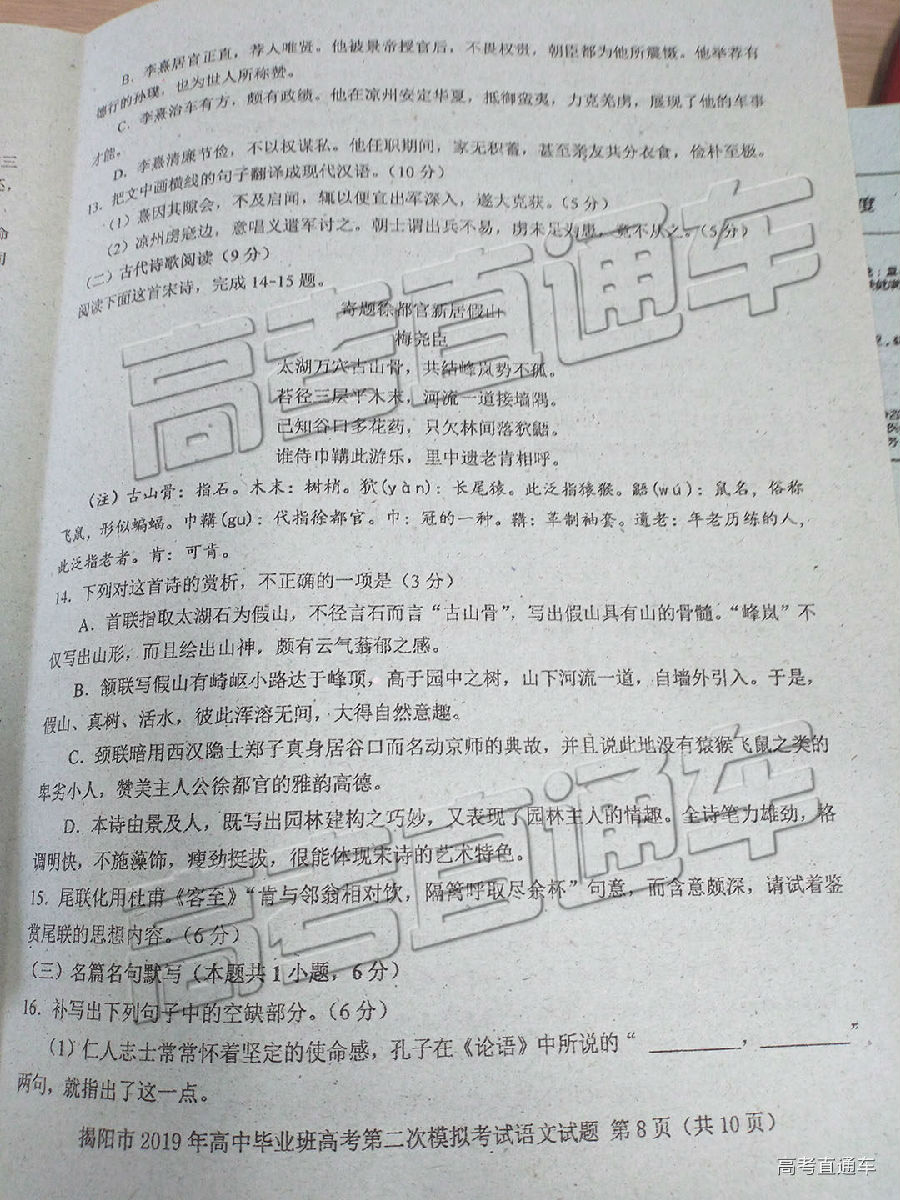 B．李熹居官正直，荐人唯贤。他被景帝授官后，不畏权贵，朝臣都为他所震慑。他举荐有
德行的孙璞，也为世人所称赞。
C．李熹治军有方，颇有政绩。他在凉州安定华夏，抵御蛮夷，力克羌虏，展现了他的军事
才能。
D．李熹清廉节俭，不以权谋私。他任职期间，家无积蓄，甚至亲友共分衣食，俭朴至极。
13．把文中画横线的句子翻译成现代汉语。（10分）
（1）熹因其隙会，不及启闻，辄以便宜出军深入，遂大克获。（5分）
（2）凉州虏寇边，熹唱义遣军讨之。朝士谓出兵不易，虏未足为患，竟不从之。（5分）
（二）古代诗歌阅读（9分）
阅读下面这首宋诗，完成14-15题。
寄题徐都官新居假山
梅尧臣
太湖万穴古山骨，共结峰岚势不孤。
苔径三层平木末，河流一道接墙隅。
已知谷口多花药，只欠林间落狖鼯。
谁侍巾鞲此游乐，里中遗老肯相呼。
（注）古山骨：指石。木末：树梢。狖(yàn)：长尾猿。此泛指猿猴。鼯(wú)：鼠名，俗称
飞鼠，形似蝙蝠。巾鞲(gu)：代指徐都官。巾：冠的一种。鞲：革制袖套。遗老：年老历练的人，
此泛指老者。肯：可肯。
14．下列对这首诗的赏析，不正确的一项是（3分）
A．首联指取太湖石为假山，不径言石而言“古山骨”，写出假山具有山的骨髓。“峰岚”不
仅写出山形，而且绘出山神，颇有云气蓊郁之感。
B．颔联写假山有崎岖小路达于峰顶，高于园中之树，山下河流一道，自墙外引入。于是，
假山、真树、活水，彼此浑溶无间，大得自然意趣。
C．颈联暗用西汉隐士郑子真身居谷口而名动京师的典故，并且说此地没有猿猴飞鼠之类的
卑劣小人，赞美主人公徐都官的雅韵高德。
D．本诗由景及人，既写出园林建构之巧妙，又表现了园林主人的情趣。全诗笔力雄劲，格
调明快，不施藻饰，瘦劲挺拔，很能体现宋诗的艺术特色。
15．尾联化用杜甫《客至》“肯与邻翁相对饮，隔篱呼取尽余杯”句意，而含意颇深，请试着鉴
赏尾联的思想内容。（6分）
（三）名篇名句默写（本题共1小题，6分）
16．补写出下列句子中的空缺部分。（6分）
（1）仁人志士常常怀着坚定的使命感，孔子在《论语》中所说的“________，________”
两句，就指出了这一点。
揭阳市2019年高中毕业班高考第二次模拟考试语文试题 第8页（共10页）
高考直通车
高考直通车
高考直通车